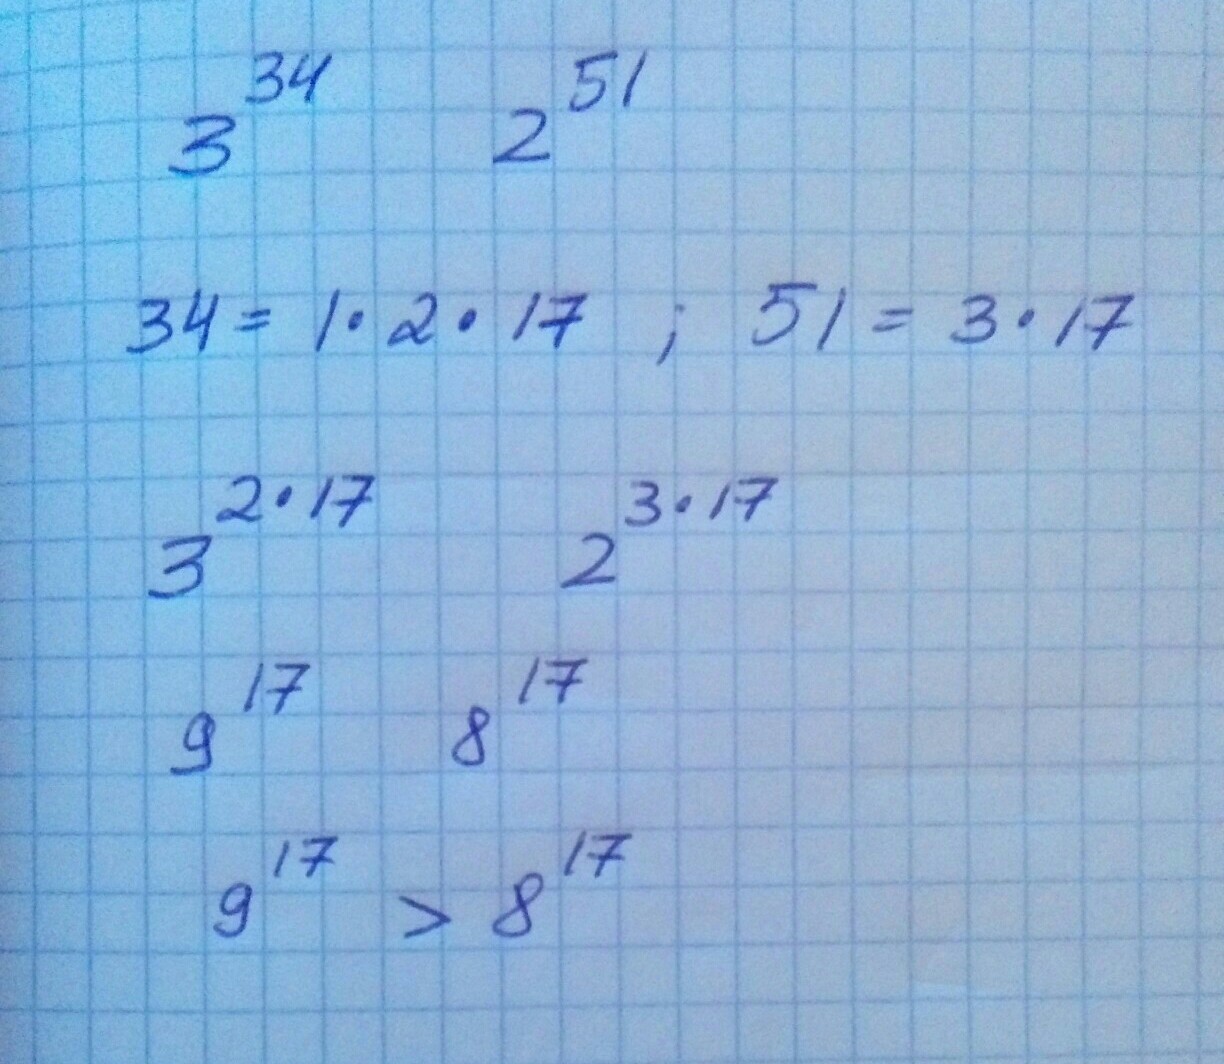 3^34 2^51
34 = 1 · 2 · 17 ; 51 = 3 · 17
3^2·17 2^3·17
9^17 8^17
9^17 > 8^17